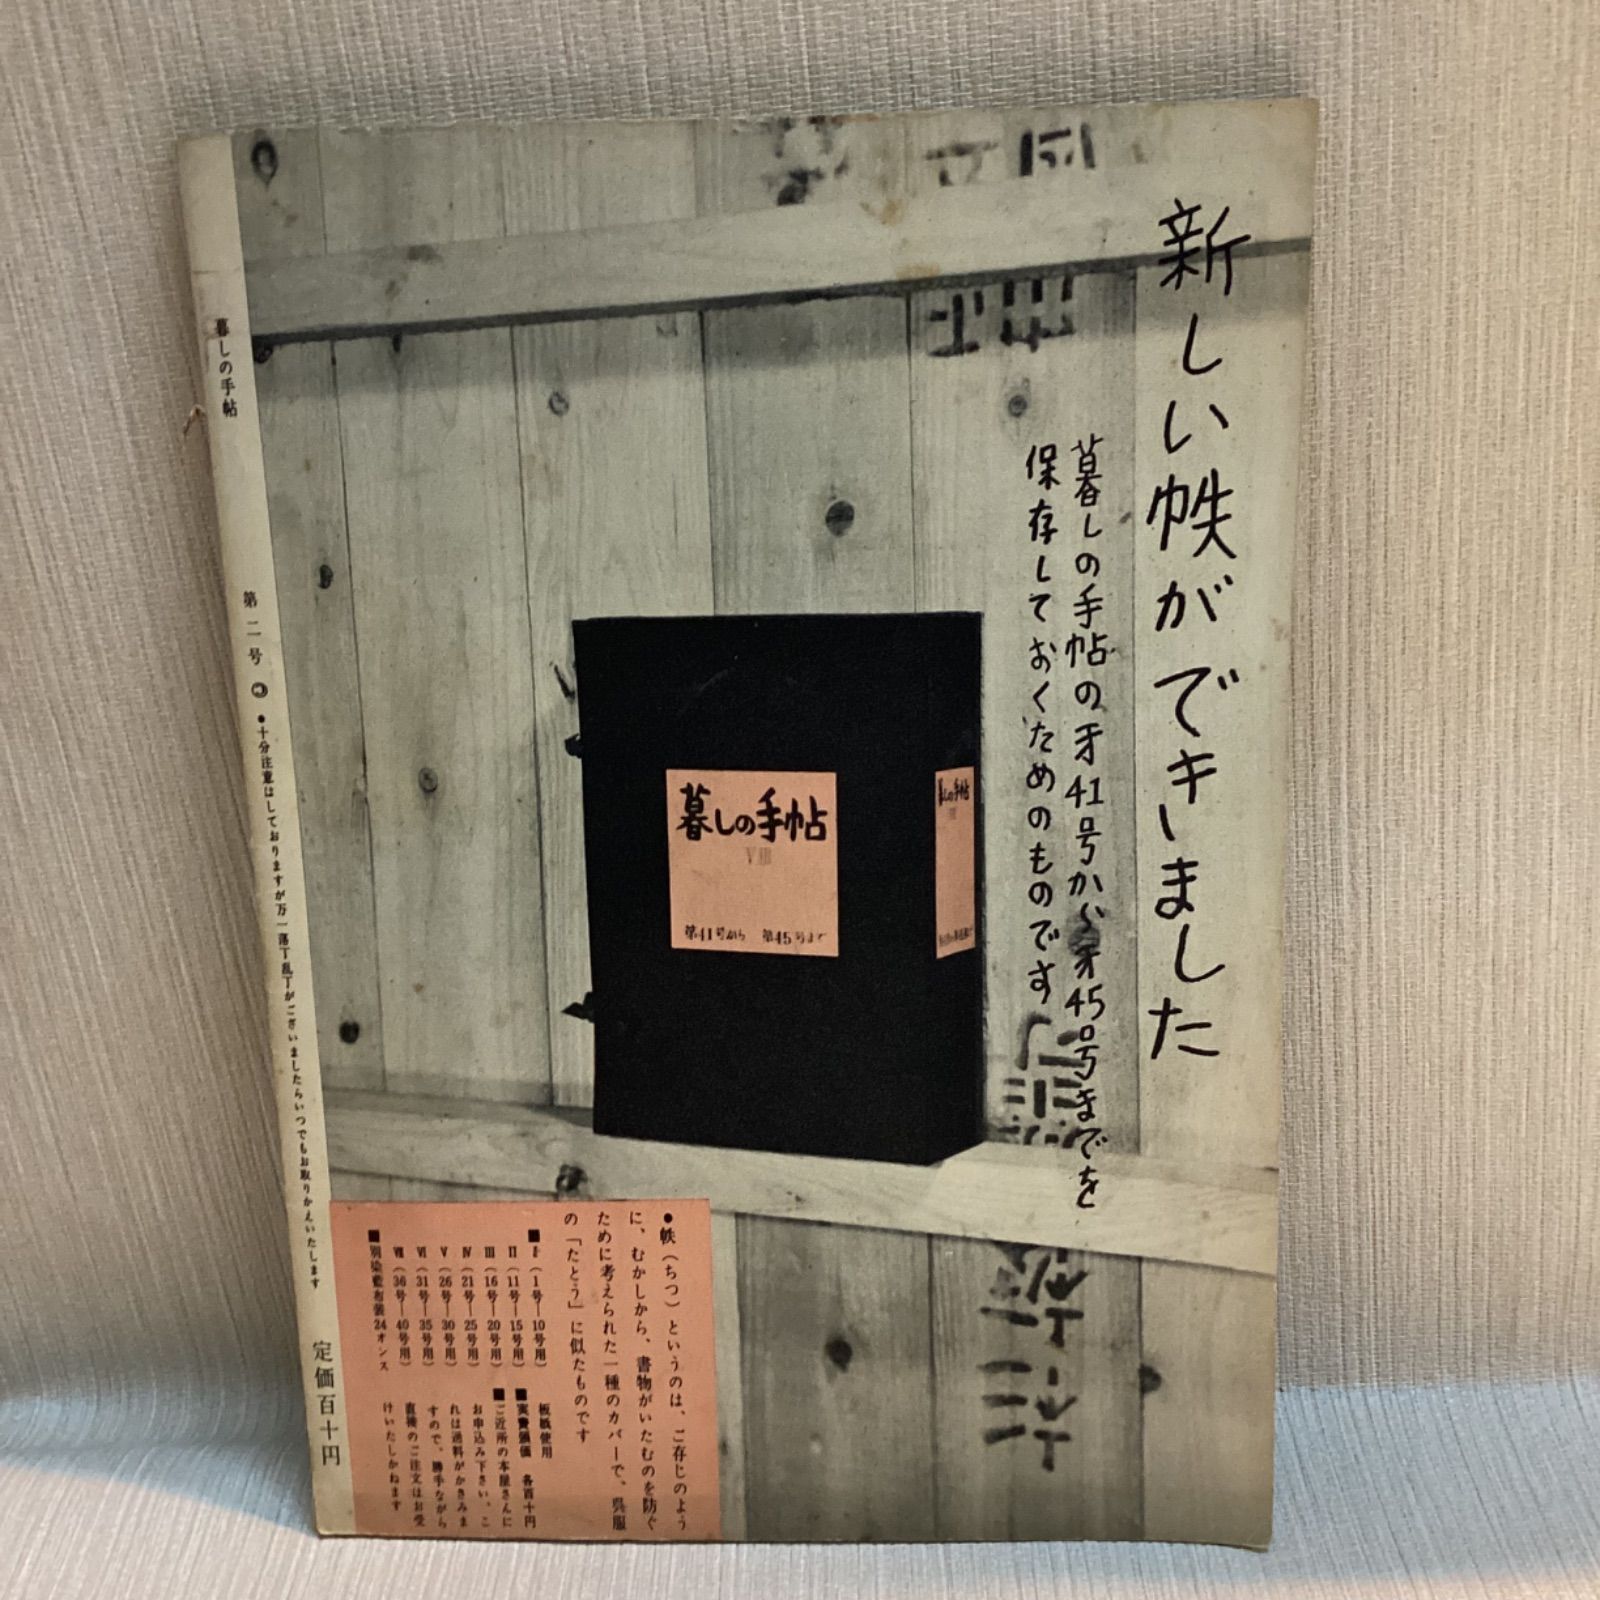 新しい帙ができました
暮しの手帖の才41号から才45号までを
保存しておくためのものです
暮しの手帖
VIII
第41号から 第45号まで
暮しの手帖
●帙(ちつ)というのは、ご存じのよう
に、むかしから、書物がいたむのを防ぐ
ために考えられた一種のカバーで、呉服
の「たとう」に似たものです
■I(1号—10号用)
II(11号—15号用)
III(16号—20号用)
IV(21号—25号用)
V(26号—30号用)
VI(31号—35号用)
VII(36号—40号用)
■別染藍布装24オンス
板紙使用
■実費頒価 各百十円
■ご近所の本屋さんに
お申込み下さい、こ
れは送料がかさみま
すので、勝手ながら
直接のご注文はお受
けいたしかねます
暮しの手帖
第二号
●十分注意はしておりますが万一落丁乱丁がございましたらいつでもお取りかえいたします
定価百十円